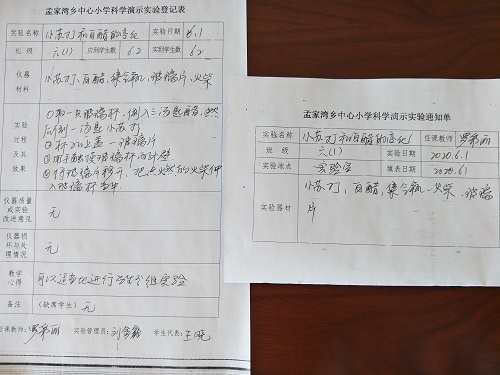 孟家湾乡中心小学科学演示实验登记表
实验名称 小苏打和白醋的变化 实验日期 6.1
班级 六(1) 应到学生数 62 实到学生数 62
仪器材料 小苏打、白醋、集合瓶、玻璃片、火柴
实验过程及其效果
①取一支玻璃杯,倒入三汤匙白醋,然
后倒一汤匙小苏打
②杯口上盖一玻璃片
③用手触摸玻璃杯的外壁
④将玻璃片移开,把点燃的火柴伸
入玻璃杯当中
仪器质量或实验改进意见 无
仪器损坏与处理情况 无
教学心得 可以适当地进行学生分组实验
备注 (缺席学生) 无
任课教师: 实验管理员: 学生代表: 王晓
孟家湾乡中心小学科学演示实验通知单
实验名称 小苏打和白醋的变化 任课教师
班级 六(1) 实验日期 2020.6.1
实验地点 实验室 填表日期 2020.6.1
实验器材 小苏打、白醋、集合瓶、火柴、玻璃
片